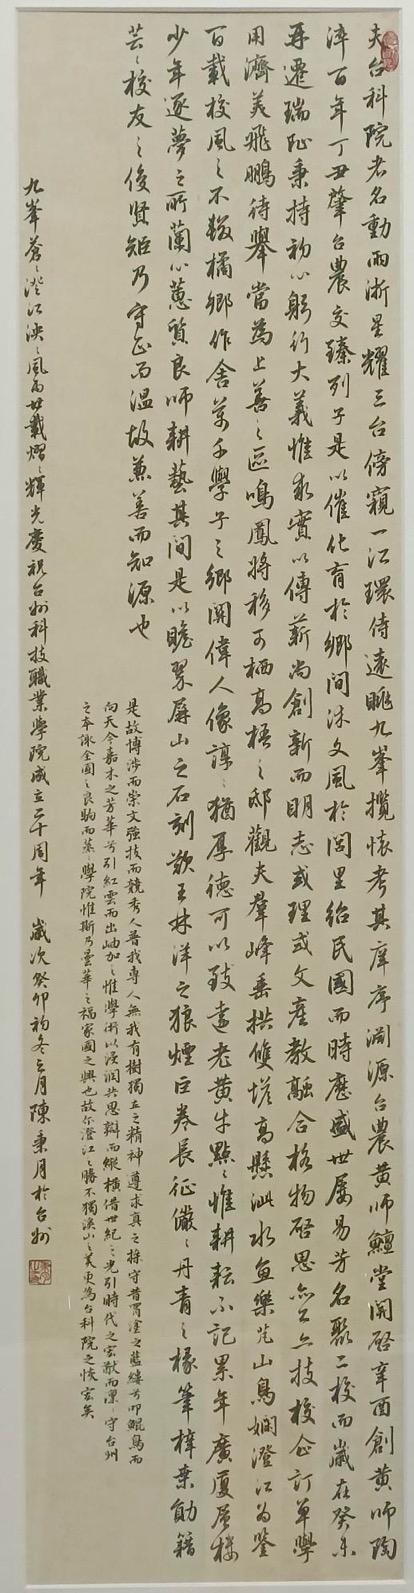 夫台科院者名動兩浙星耀三台傍窺一江環侍遠眺九峯攬懷考其庠序淵源台農黄师鱣堂開啓辛酉創黄师陶
淬百年丁丑肇台農交臻列子是以催化育於鄉間沐文風於閭里紿民國而時應盛世屡易芳名聚二校而歲在癸未
再遷瑞阯秉持初心躬行大義惟求實以傳薪尚創新而明志或理或文產教融合格物啓思亦工亦技校企訂單學
用濟美飛鵬待舉當為上善之區鳴鳳將移可栖高梧之邸觀夫羣峰垂拱雙塔高懸泚水魚樂山鳥嫻澄江为鑒
百載校風之不緩橘鄉作舍萬千學子之鄉關偉人像諄諄猶厚德可以致遠老黄牛點點惟耕耘不記累年廣厦层楼
少年逐夢之所蘭心蕙質良师耕藝其間是以瞻翠屏山之石刻歎王林洋之狼煙巨卷長征儼儼丹青之椽筆梓葉勛籍
芸芸校友之俊賢矩乃守正而温故兼善而知源也
是故博涉而崇文强技而競秀人普我專人無我有樹獨立之精神遵求真之操守昔篳塗之藍縷兮叩鯤鳥而
向天今嘉木之芳華兮引紅雲而出岫加之惟學術以浸润共思辯而縱横借世紀之光引時代之宏猷而凛守台州
之本詠全國之良駒而蒸蒸學院惟斯乃曇華之福家國之興也故尔澄江之勝不獨溪山之美更為台科院之恢宏矣
九峯蒼蒼澄江泱泱風雨廿載熠熠輝光慶祝台州科技職業學院成立二十周年 歲次癸卯初冬之月陳秉月於台州